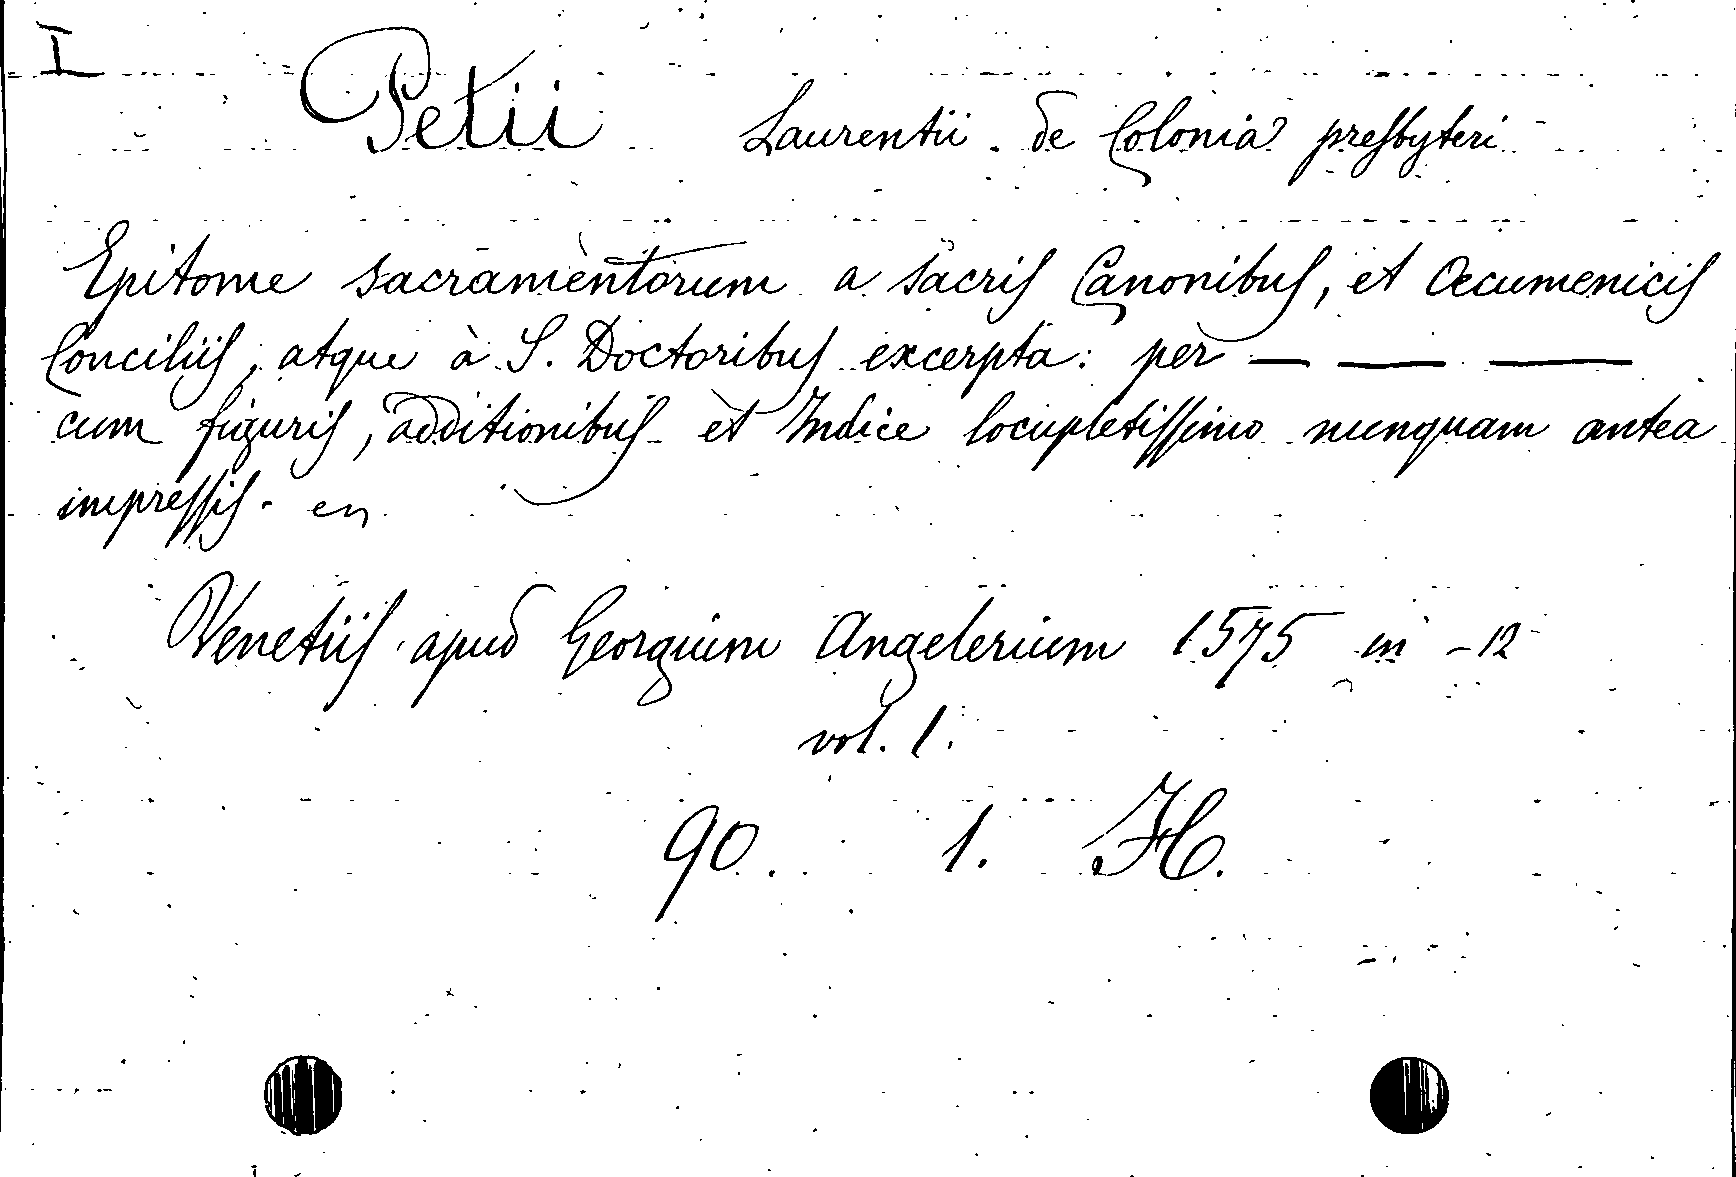 I
Petii Laurentii de Colonia presbyteri
Epitome sacramentorum a sacris Canonibus, et Oecumenicis
Conciliis, atque à S. Doctoribus excerpta: per — — —
cum figuris, additionibus et Indice locupletissimo nunquam antea
impressis. en
Venetiis apud Georgium Angelerium 1575 in -12
vol. 1.
90. 1. H.